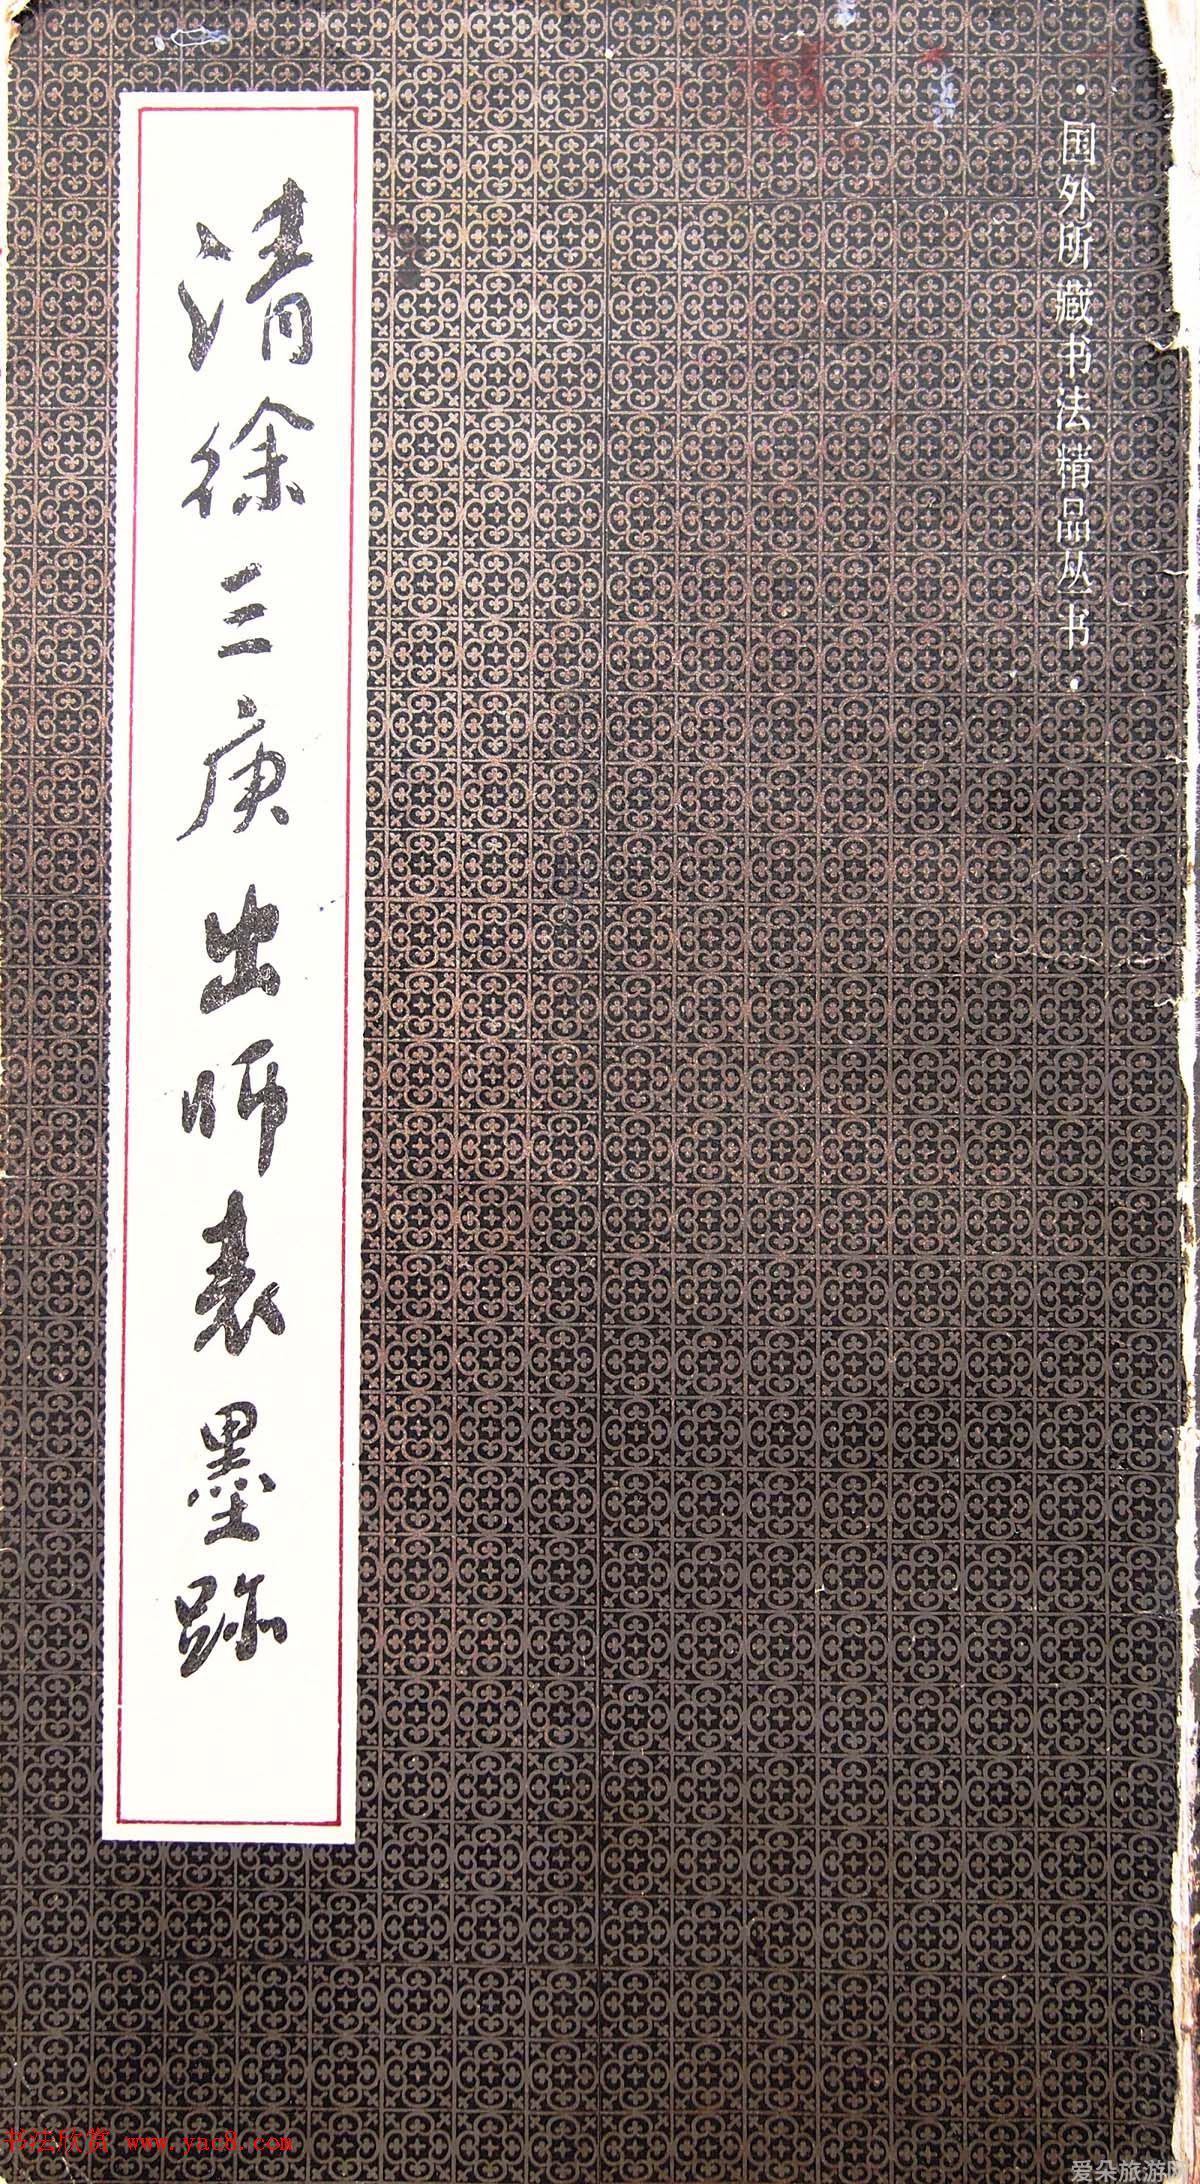 ·国外所藏书法精品丛书·
清徐三庚出师表墨跡
书法欣赏 www.yac8.com
爱朵旅游网